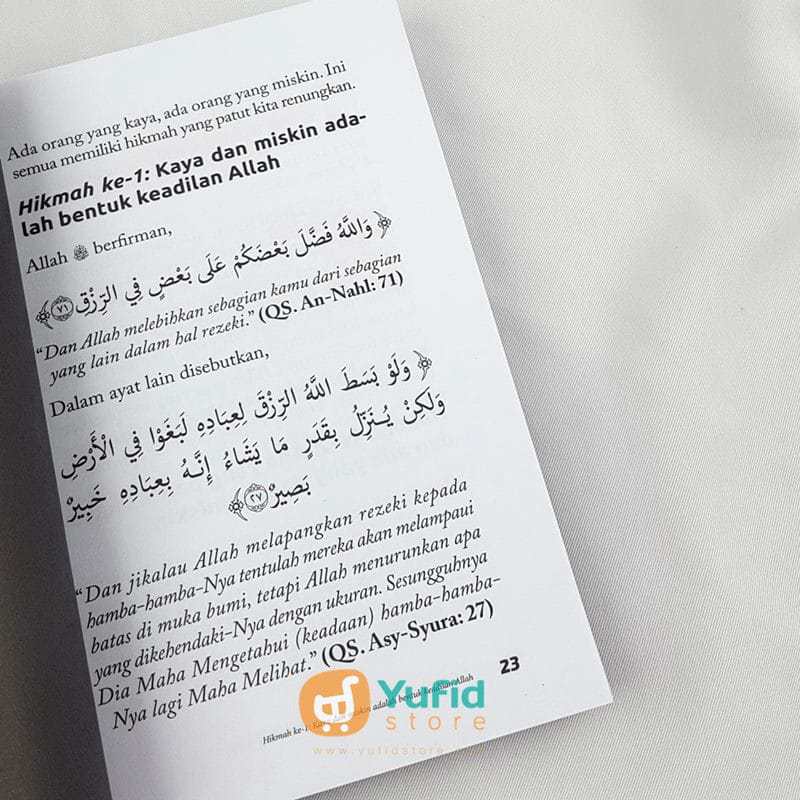 Ada orang yang kaya, ada orang yang miskin. Ini
semua memiliki hikmah yang patut kita renungkan.
Hikmah ke-1: Kaya dan miskin ada-
lah bentuk keadilan Allah
Allah ﷻ berfirman,
﴿ وَاللَّهُ فَضَّلَ بَعْضَكُمْ عَلَى بَعْضٍ فِي الرِّزْقِ ٧١ ﴾
“Dan Allah melebihkan sebagian kamu dari sebagian
yang lain dalam hal rezeki.” (QS. An-Nahl: 71)
Dalam ayat lain disebutkan,
﴿ وَلَوْ بَسَطَ اللَّهُ الرِّزْقَ لِعِبَادِهِ لَبَغَوْا فِي الْأَرْضِ
وَلَكِنْ يُنَزِّلُ بِقَدَرٍ مَا يَشَاءُ إِنَّهُ بِعِبَادِهِ خَبِيرٌ
بَصِيرٌ ٢٧ ﴾
“Dan jikalau Allah melapangkan rezeki kepada
hamba-hamba-Nya tentulah mereka akan melampaui
batas di muka bumi, tetapi Allah menurunkan apa
yang dikehendaki-Nya dengan ukuran. Sesungguhnya
Dia Maha Mengetahui (keadaan) hamba-hamba-
Nya lagi Maha Melihat.” (QS. Asy-Syura: 27)
Hikmah ke-1: Kaya dan miskin adalah bentuk keadilan Allah
23
Yufid
store
www.yufidstore